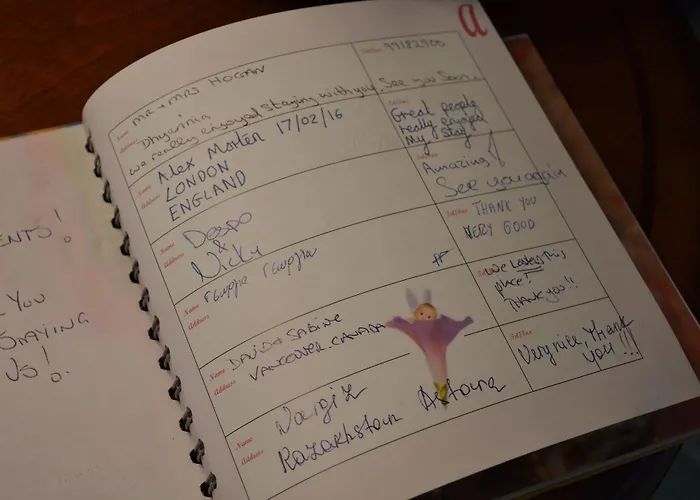 ENTS!
YOU
STAYING
US!
a
Name MR + MRS HOGAN
Address Dhyerinia
we really enjoyed staying with you, See you Soon.
99182900
Name Alex Morten 17/02/16
Address LONDON
ENGLAND
Great people
really enjoyed
My stay
Name Deepo
&
Address Nicky
Amazing!
See you again
Name Γεωργία Γεωργία
Address
THANK YOU
VERY GOOD
Name DAVID & SABINE
Address VANCOUVER. CANADA
We Loved this
place!
Thank you!!
Name Nargiz
Address Kazakhstan Astana
Very nice, Thank
you!!!